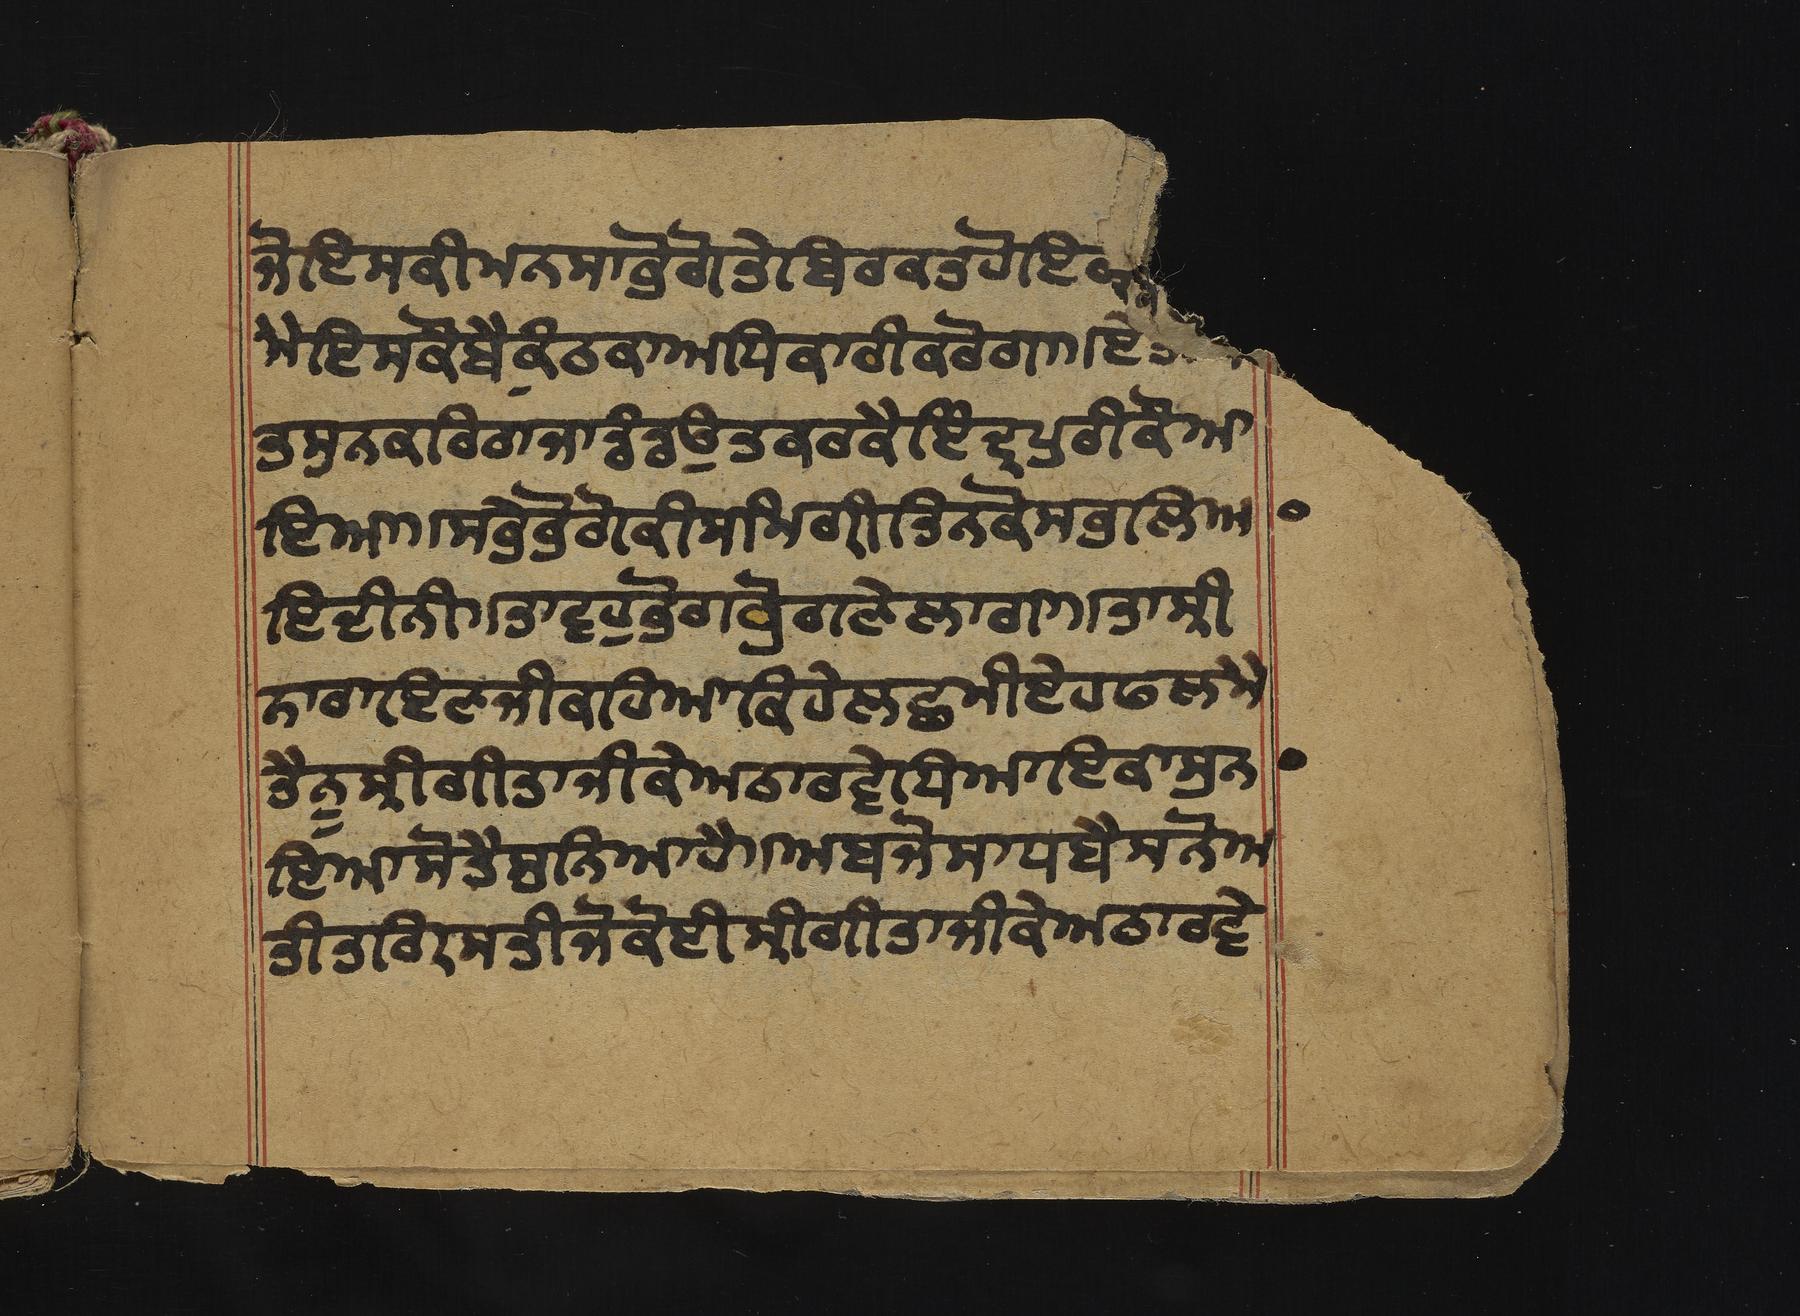 ਜੋਇਸਕੀਮਨਸਾਭੋਗੋਤੇਬਿਰਕਤਹੋਇ
ਮੈਇਸਕੋਬੈਕੁੰਠਕਾਅਧਿਕਾਰੀਕਰੋਗਾ।ਇ
ਤਸੁਨਕਰਿਰਾਜਾਤੁੰਰੁਉਤਕਰਕੈਇੰਦ੍ਰਪੁਰੀਕੋਆ
ਇਆ।ਸਭੋਭੋਗੋਕੀਸਮਿਗ੍ਰੀਤਿਨਕੋਸਭੁਲਿਆ
ਇਦੀਨੀ।ਤਾਵੁਹੁਭੋਗਭੋਗਣੇਲਾਗਾ।ਤਾਸ੍ਰੀ
ਨਾਰਾਇਣਜੀਕਹਿਆਕਿਹੇਲਛਮੀਏਹਫਲਮੈ
ਤੈਨੂਸ੍ਰੀਗੀਤਾਜੀਕੇਅਠਾਰਵੇਧਿਆਇਕਾਸੁਨ
ਇਆਸੋਤੈਸੁਨਿਆਹੈ।ਅਬਜੋਸਾਧਬੈਸਨੋਅ
ਤੀਤਗ੍ਰਿਸਤੀਜੋਕੋਈਸ੍ਰੀਗੀਤਾਜੀਕੇਅਠਾਰਵੇ